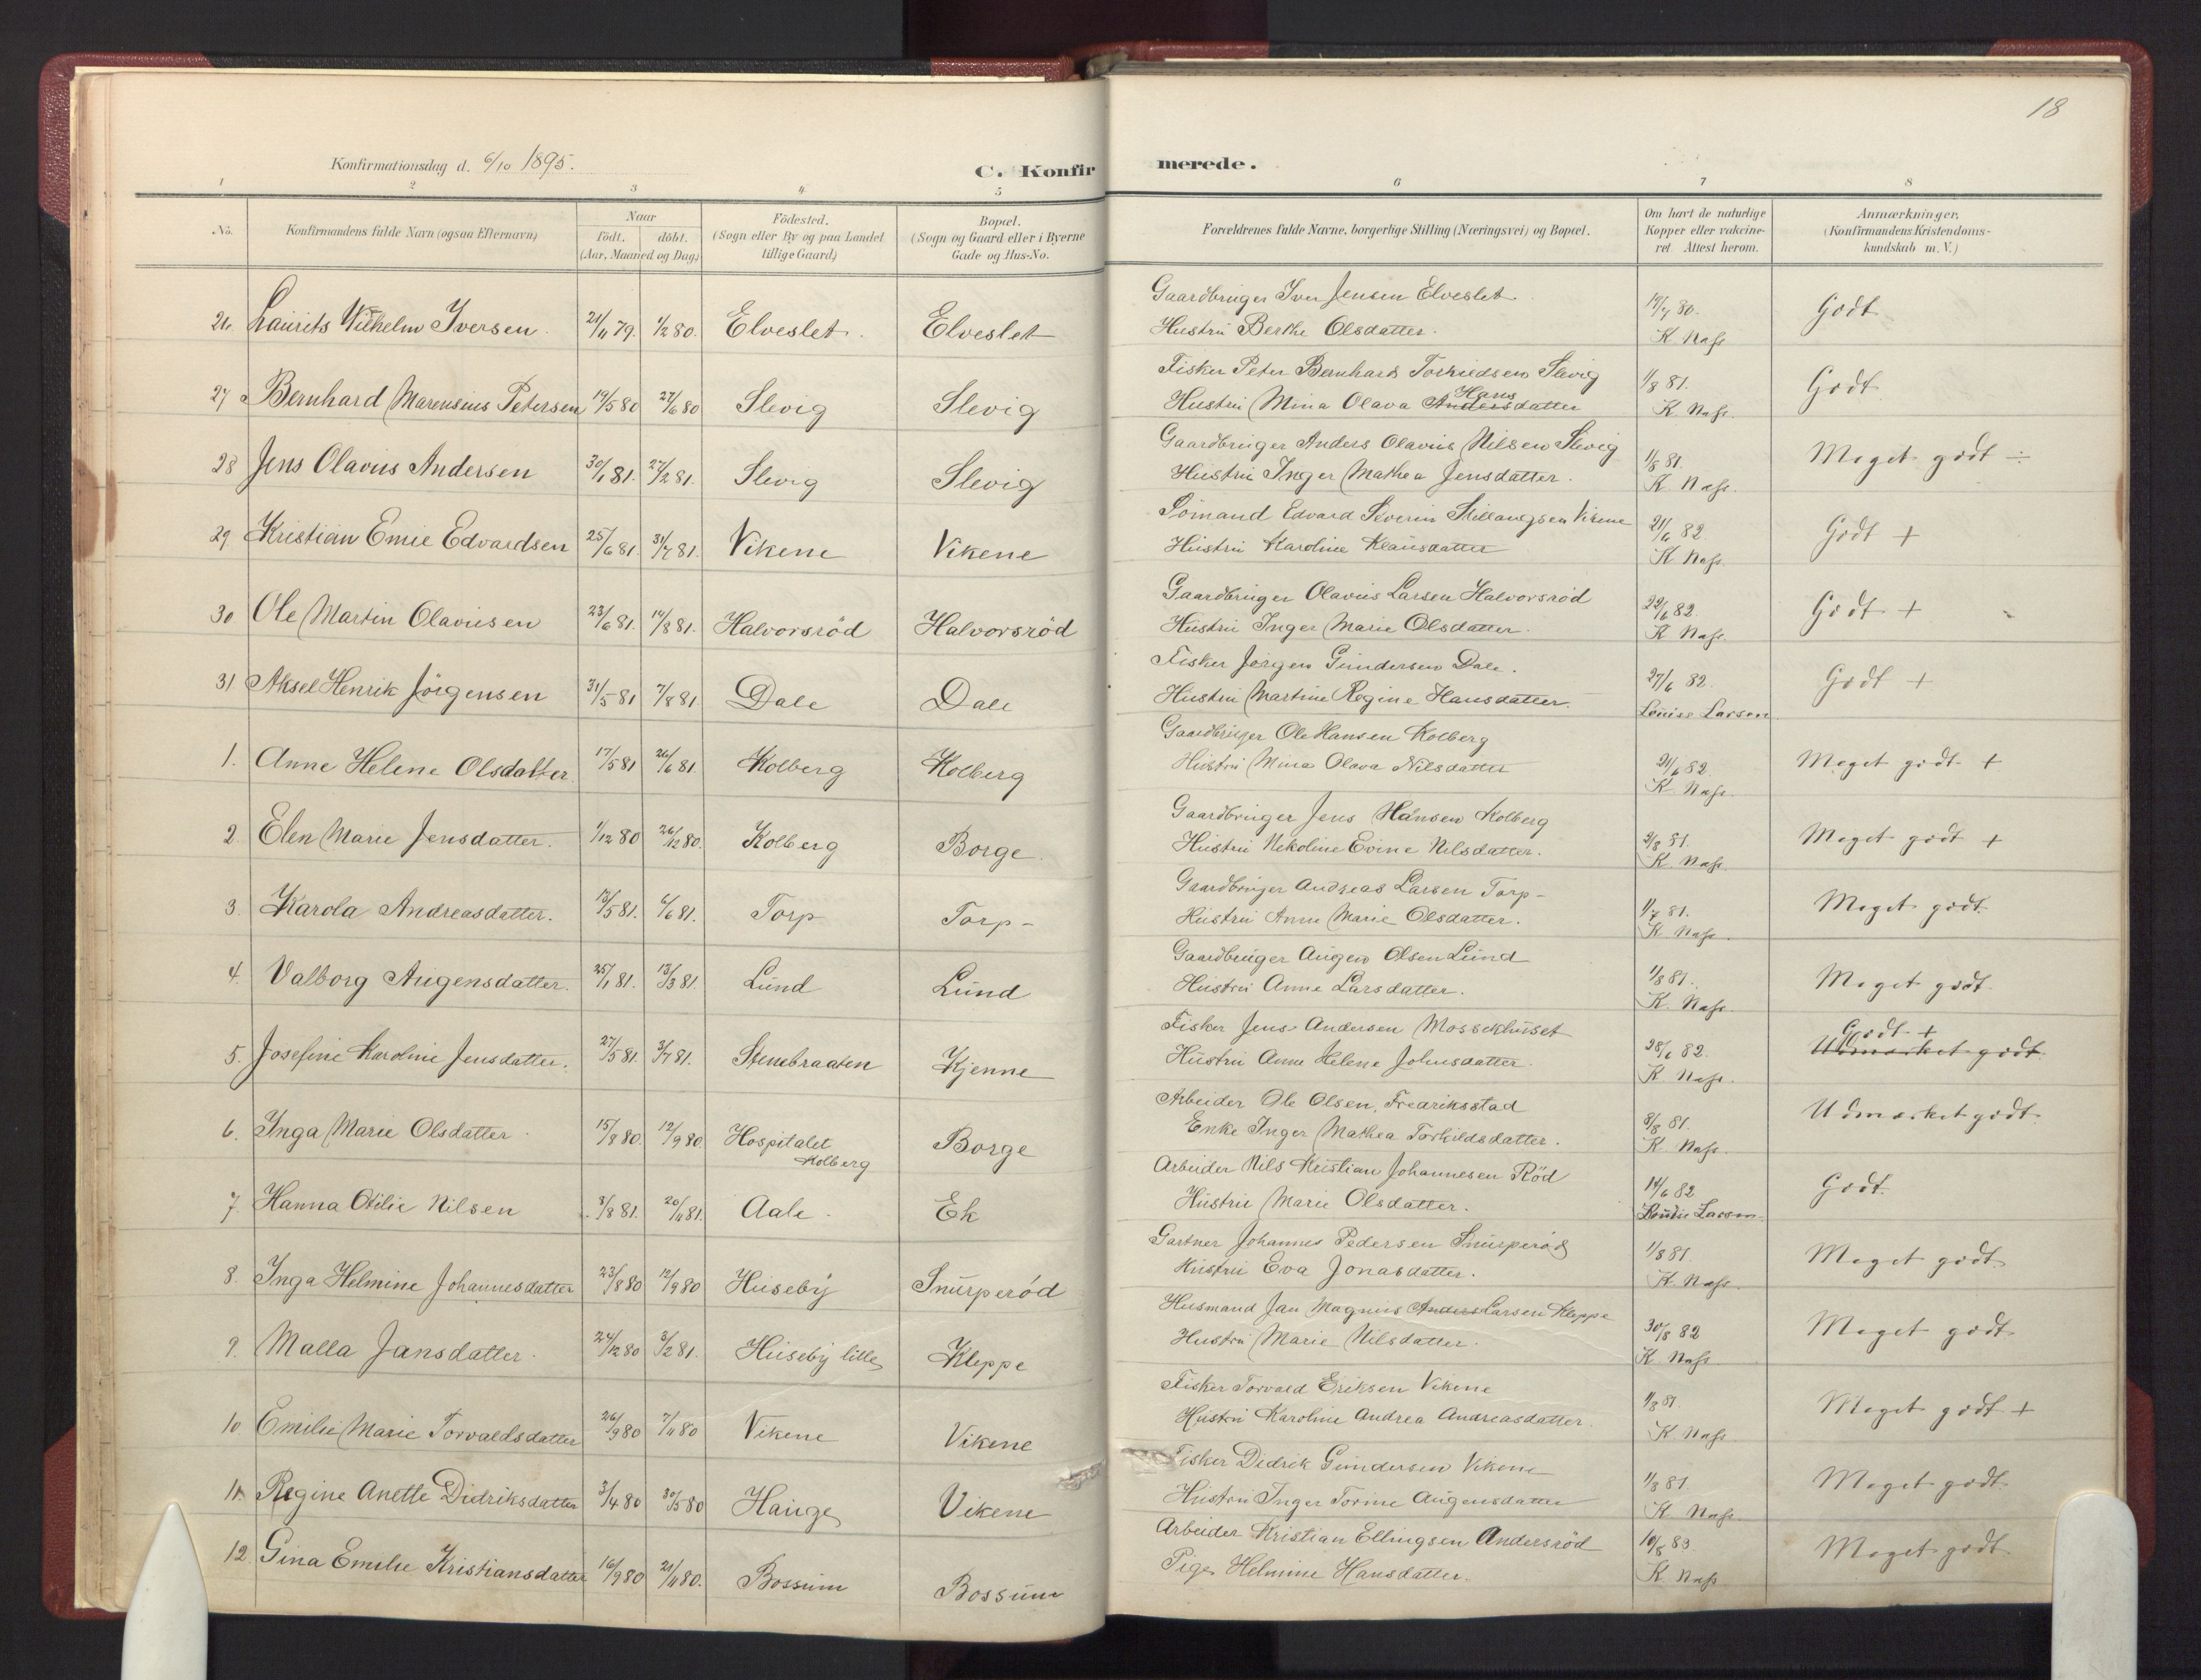 18
Konfirmationsdag d. 6/10 1895.
C. Konfirmerede.
1 2 3 4 5 6 7 8
No.
Konfirmandens fulde Navn (ogsaa Efternavn)
Naar
födt. döbt.
(Aar, Maaned og Dag.)
Födested.
(Sogn eller By og paa Landet
tillige Gaard)
Bopæl.
(Sogn og Gaard eller i Byerne
Gade og Hus-No.
Forældrenes fulde Navne, borgerlige Stilling (Næringsvei) og Bopæl.
Om havt de naturlige
Kopper eller vakcine-
ret Attest herom.
Anmærkninger.
(Konfirmandens Kristendoms-
kundskab m. V.)
Gaardbruger Iver Jensen Elveslet.
26. Laurits Vilhelm Iversen. 21/11 79. 1/2 80. Elveslet. Elveslet 19/7 80. Godt
Hustru Berthe Olsdatter. K. Næss
Fisker Peter Bernhard Torkildsen Slevig
27 Bernhard Marensius Petersen 19/5 80 27/6 80 Slevig Slevig 1/8 81. Godt
Hustru Mina Olava Anders Hansdatter K. Næss.
Gaardbruger Anders Olavus Nilsen Slevig
28 Jens Olavus Andersen 30/1 81. 27/2 81. Slevig Slevig 1/8 81. Meget godt ÷
Hustru Inger Mathea Jensdatter. K. Næss.
Sömand Edvard Severin Stillaugsen Vikene
29 Kristian Emil Edvardsen 25/6 81. 31/7 81. Vikene Vikene 21/6 82 Godt +
Hustru Karoline Klausdatter K. Næss.
Gaardbruger Olavus Larsen Halvorsröd
30 Ole Martin Olavusen 23/6 81. 14/8 81. Halvorsröd Halvorsröd 22/6 82. Godt +
Hustru Inger Marie Olsdatter. K. Næss.
Fisker Jörgen Gundersen Dale.
31 Aksel Henrik Jörgensen 31/5 81 7/8 81 Dale Dale 27/6 82. Godt +
Hustru Martine Regine Hansdatter. Louise Larsen
Gaardbruger Ole Hansen Kolberg
1. Anne Helene Olsdatter 17/5 81 26/6 81. Kolberg Kolberg 21/6 82. Meget godt +
Hustru Mina Olava Nilsdatter K. Næss.
Gaardbruger Jens Hansen Kolberg
2. Elen Marie Jensdatter. 1/12 80 26/12 80. Kolberg Borge. 2/8 81. Meget godt +
Hustru Nikoline Evine Nilsdatter. K. Næss.
Gaardbruger Andreas Larsen Torp-
3. Karola Andreasdatter. 12/5 81. 6/6 81. Torp Torp- 1/7 81. Meget godt.
Hustru Anne Marie Olsdatter. K. Næss.
Gaardbruger Augen Olsen Lund
4. Valborg Augensdatter. 25/1 81. 13/3 81. Lund Lund 1/8 81. Meget godt
Hustru Anne Larsdatter. K. Næss.
Fisker Jens Andersen Mossekhuset Godt +
5. Josefine Karoline Jensdatter. 27/5 81. 3/7 81. Stenebraaten Kjenne 28/6 82. Udmærket godt.
Hustru Anne Helene Johnsdatter. K. Næss.
Arbeider Ole Olsen, Fredriksstad
6. Inga Marie Olsdatter 15/8 80. 12/9 80 Hospitalet Kolberg Borge 8/8 81. Udmærket godt.
Enke Inger Mathea Torkildsdatter. K. Næss.
Arbeider Nils Kristian Johannesen Röd
7. Hanna Otilie Nilsen 3/8 81. 20/11 81. Aale. Ek 14/6 82 Godt.
Hustru Marie Olsdatter. Louise Larsen
Gartner Johannes Pedersen Snurperöd
8. Inga Helmine Johannesdatter 23/8 80 12/9 80 Huseby Snurperöd 1/8 81. Meget godt.
Hustru Eva Jonasdatter. K. Næss.
Husmand Jan Magnus Anders Larsen Kleppe
9. Malla Jansdatter. 24/12 80 3/2 81. Huseby lille Kleppe 30/8 82 Meget godt
Hustru Marie Nilsdatter. K. Næss
Fisker Torvald Eriksen Vikene
10 Emilie Marie Torvaldsdatter 26/9 80 7/11 80 Vikene Vikene 1/8 81. Meget godt +
Hustru Karoline Andrea Andreasdatter. K. Næss
Fisker Didrik Gundersen Vikene
11. Regine Anette Didriksdatter 3/4 80 30/5 80 Hauge Vikene 1/8 81 Meget godt.
Hustru Inger Torine Augensdatter K. Næss.
Arbeider Kristian Ellingsen Andersröd
12. Gina Emilie Kristiansdatter 16/9 80 21/11 80. Bossum Bossum 10/8 83. Meget godt.
Pige Helmine Hansdatter. K. Næss